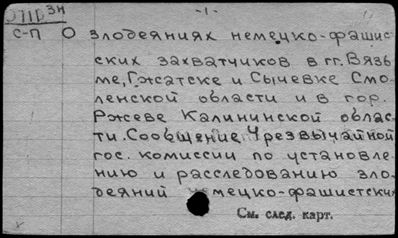 -1-
С-П О злодеяниях немецко-фашис
ских захватчиков в гг. Вязь
ме, Гжатске и Сычевке Смо-
ленской области и в гор.
Ржеве Калининской облас-
ти. Сообщение Чрезвычайной
гос. комиссии по установле-
нию и расследованию зло-
деяний немецко-фашистски
См. след. карт.